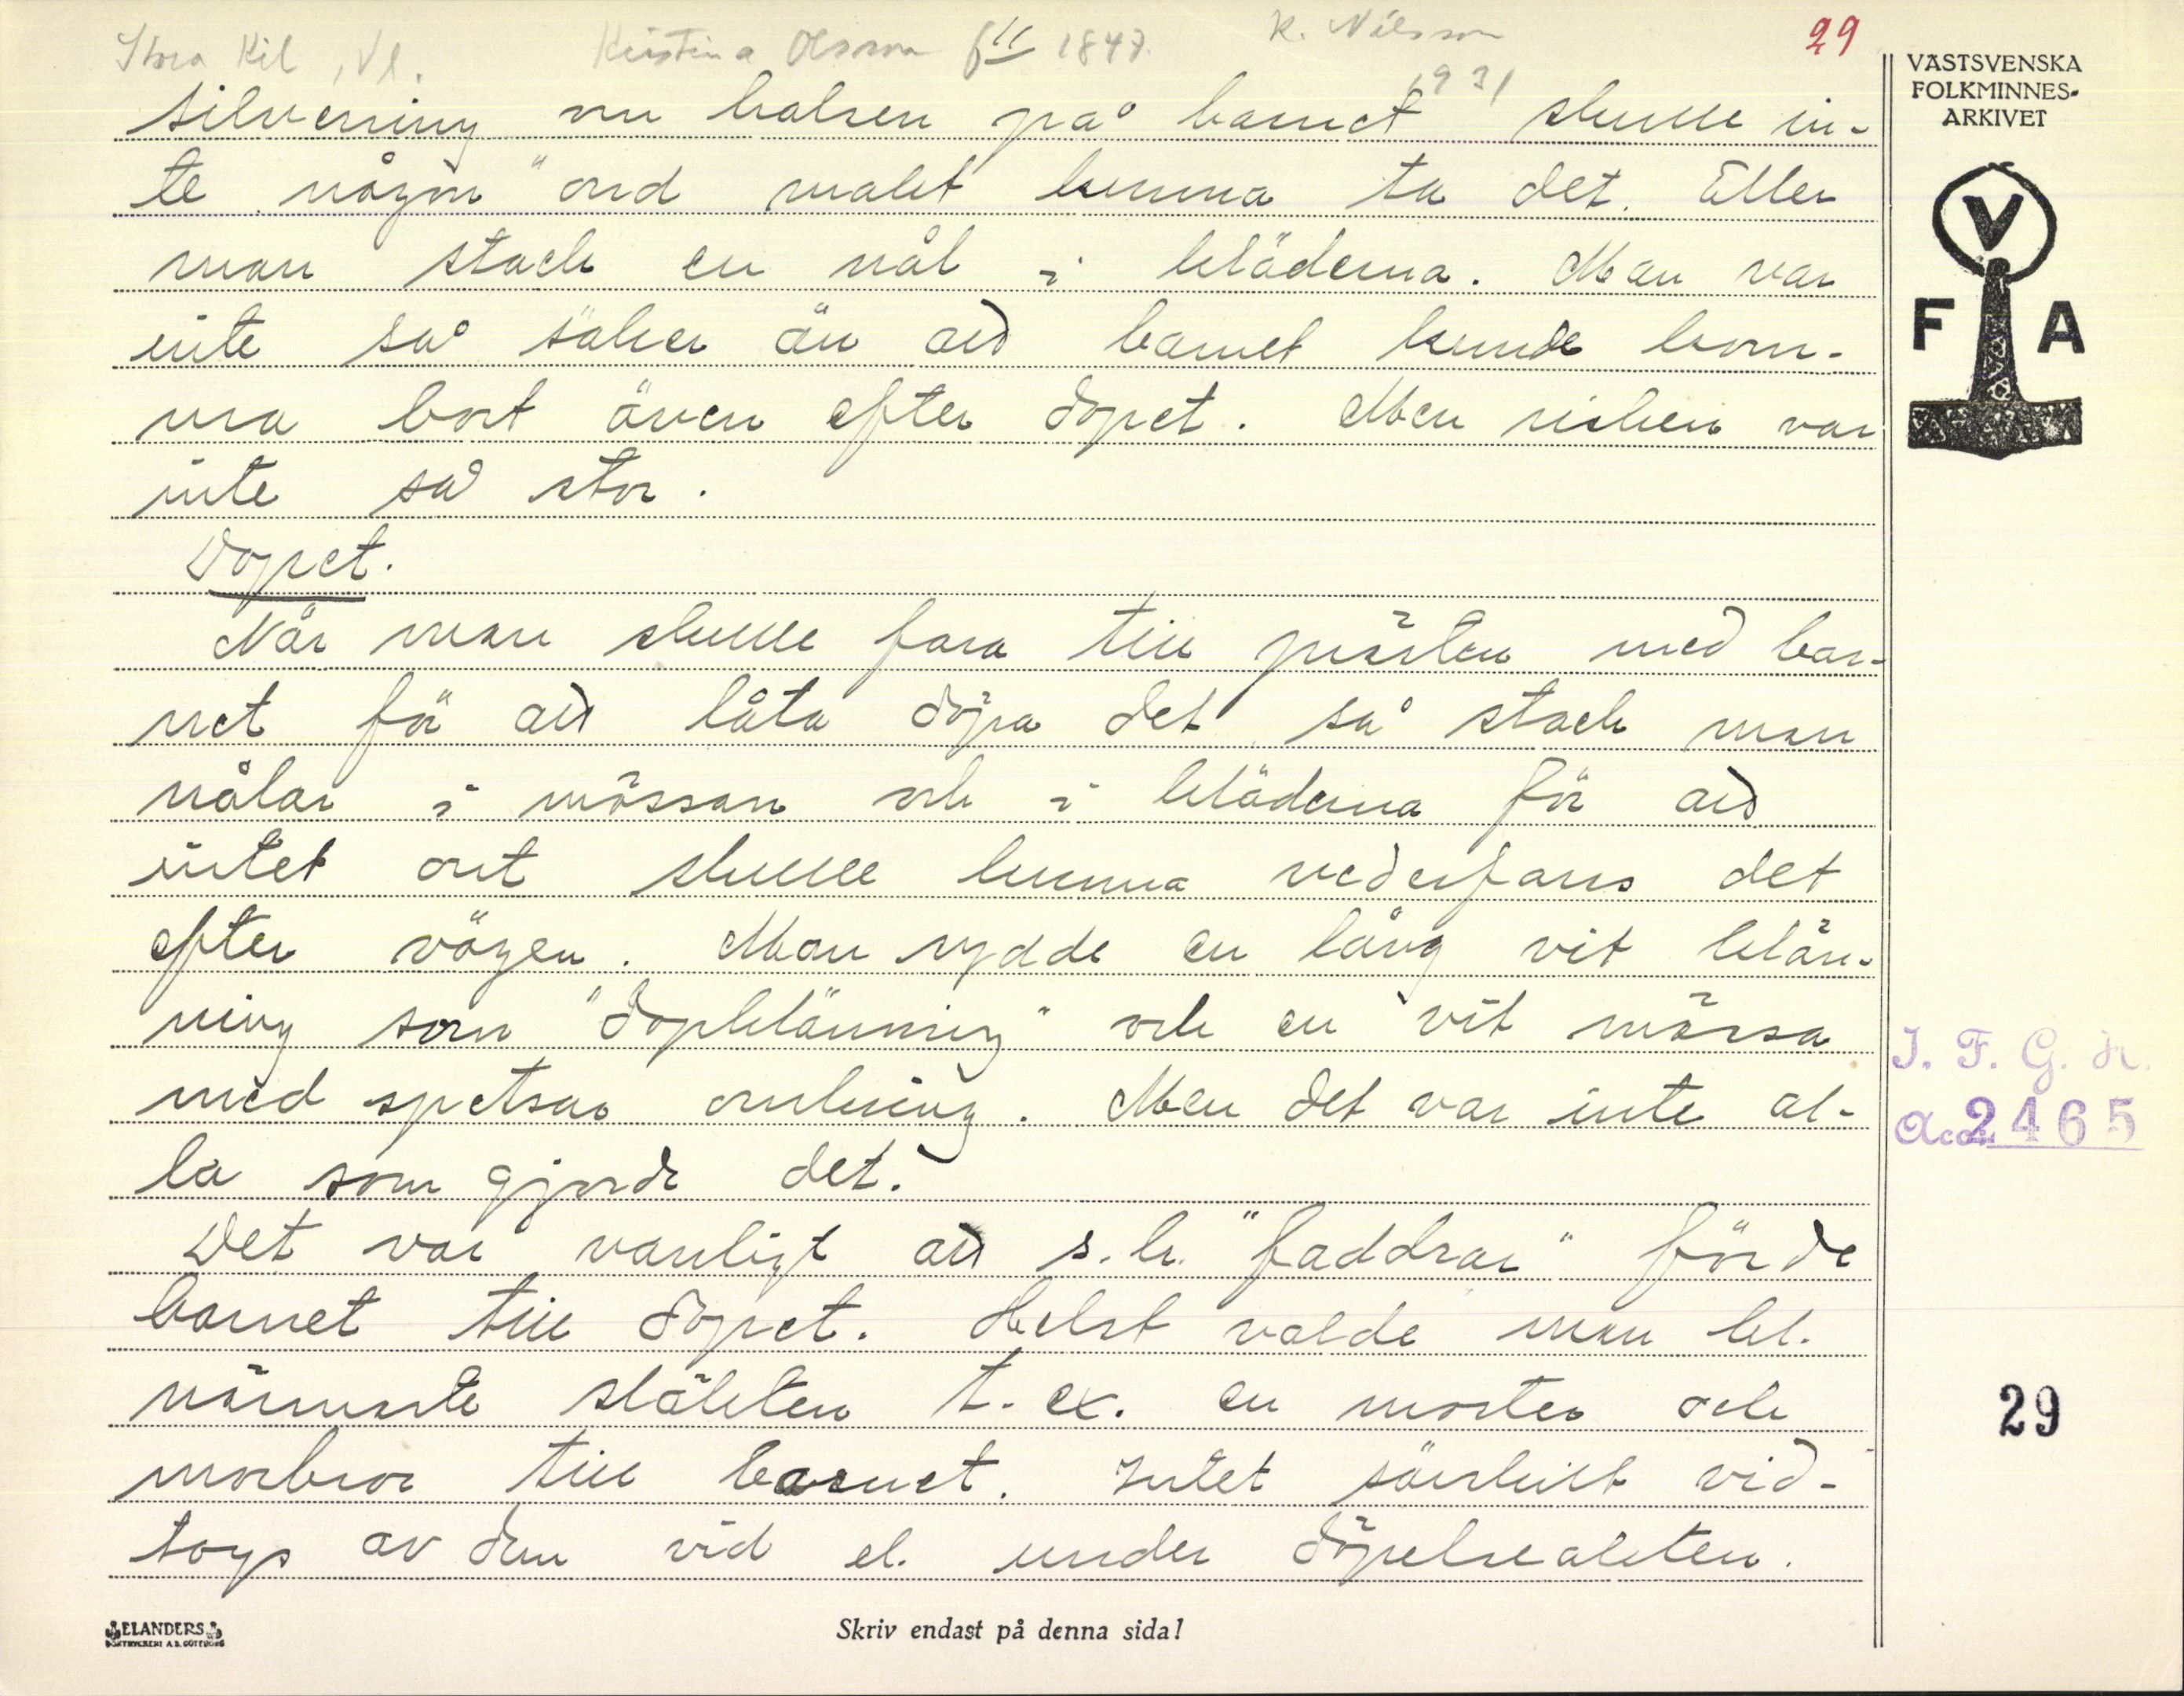 Stora Kil, Vl. Kristina Olsson f 11/ 1847. K. Nilsson 1931 29
silverring om halsen på barnet skulle in-
te någon "ond makt kunna ta det. Eller
man stack en nål i kläderna. Man var
inte så säker än att barnet kunde kom-
ma bort även efter dopet. Men risken var
inte så stor.
Dopet.
När man skulle fara till prästen med bar-
net för att låta döpa det så stack man
nålar i mössan och i kläderna för att
intet ont skulle kunna vederfaras det
efter vägen. Man sydde en lång vit klän-
ning som "dopklänning" och en vit mössa
med spetsar omkring. Men det var inte al-
la som gjorde det.
Det var vanligt att s.k. "faddrar" förde
barnet till dopet. Helst valde man bl.
närmaste släkten t. ex. en moster och
morbror till barnet. Intet särskilt vid-
togs av dem vid el. under döpelseakten.
VÄSTSVENSKA
FOLKMINNES-
ARKIVET
V
F A
I. F. G. H.
Acc. 2465
29
ELANDERS
BOKTRYCKERI A.B. GÖTEBORG
Skriv endast på denna sida!